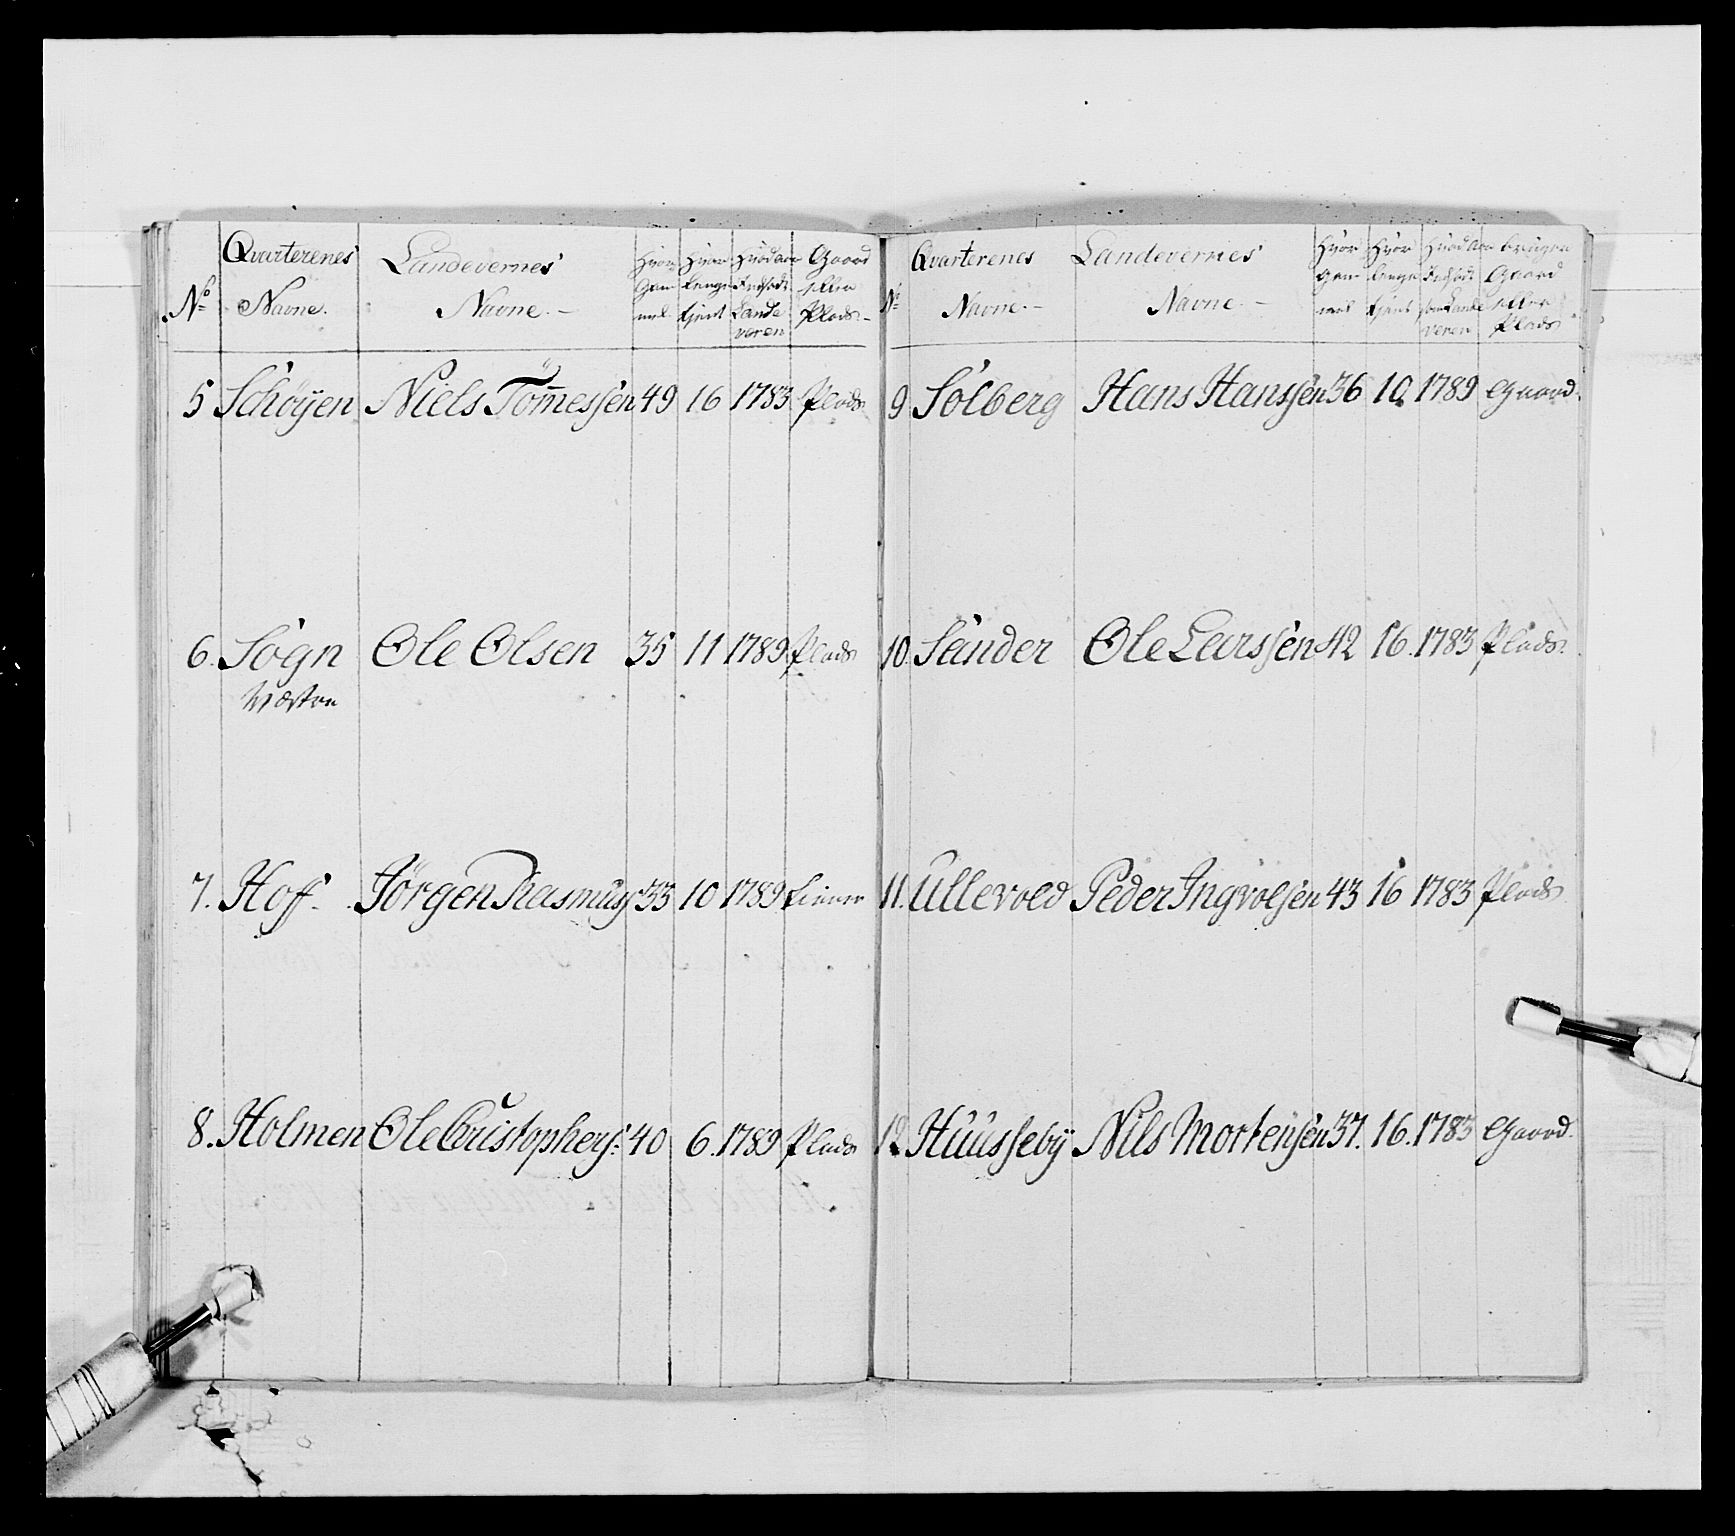 Qvarterenes Landevernes Hvor Hvor Hvad Aar Gaard
gam lenge Indsadt eller
No Navne. Navne. – mel tjent Lande Plads –
veren
5 Schøyen Niels Tom̅esSen 49 16 1783 Plads
6. Sogn Ole Olsen 35 11 1789 Plads
Wæstre
7. Hoff. Jörgen Rasmus: 33 10 1789
8. Holmen Ole Cristophers: 40 6. 1789 Plads
Qvarterenes Landevernes Hvor Hvor Hvad Aar bruger
gam lenge Indsadt Gaard
No Navne. – Navne. – mel tjent som Lande eller
veren Plads
9 Solberg Hans Hanssen 36 10. 1789 Gaard.
10. Sander Ole Larssen 42 16. 1783 Plads.
11. Ullevold Peder Ingvolsen 43 16 1783 Plads
12. Huusseby Nils Mortensen 37. 16. 1783 Gaard.